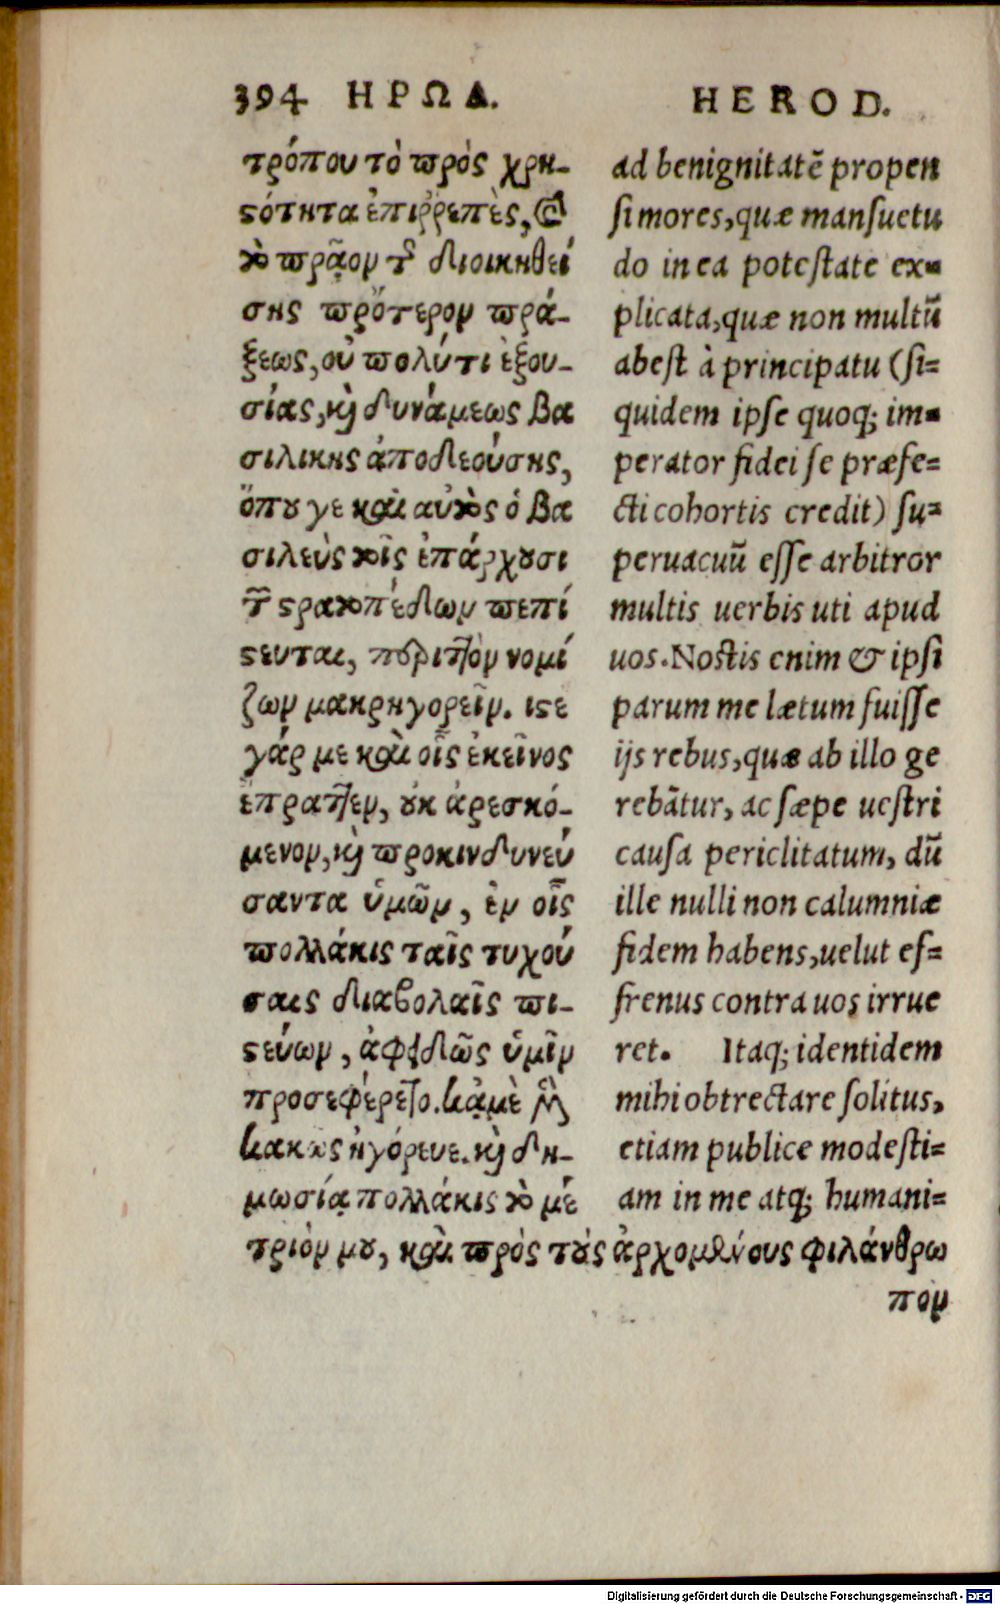 394 ΗΡΩΔ.
τρόπου τὸ πρὸς χρη-
ςότητα ἐπιῤῥεπὲς, καὶ
τὸ πρᾷον τῆς διοικηθεί
σης πρότερον πρά-
ξεως, οὐ πολύ τι ἐξου-
σίας, καὶ δυνάμεως βα
σιλικης ἀποδεούσης,
ὅπου γε καὶ αὐτὸς ὁ βα
σιλεὺς τοῖς ἐπάρχουσι
τῶν ςρατοπέδων πεπί
ςευται, περιττὸν νομί
ζων μακρηγορεῖν. ιςε
γάρ με καὶ οἷς ἐκεῖνος
ἔπραττεν, οὐκ ἀρεσκό-
μενον, καὶ προκινδυνεύ
σαντα ὑμῶν, ἐν οἷς
πολλάκις ταῖς τυχού
σαις διαβολαῖς πι-
ςεύων, ἀφειδῶς ὑμῖν
προσεφέρετο. κἀμὲ γὰρ
κακῶς ἠγόρευε. καὶ δη-
μωσίᾳ πολλάκις τὸ μέ
τριόν μου, καὶ πρὸς τοὺς ἀρχομένους φιλάνθρω
πον
HEROD.
ad benignitatē propen
si mores, quæ mansuetu
do in ea potestate ex-
plicata, quæ non multū
abest à principatu (si-
quidem ipse quoq; im-
perator fidei se præfe-
cti cohortis credit) su-
peruacuū esse arbitror
multis uerbis uti apud
uos. Nostis enim & ipsi
parum me lætum fuisse
ijs rebus, quæ ab illo ge
rebātur, ac sæpe uestri
causa periclitatum, dū
ille nulli non calumniæ
fidem habens, uelut ef-
frenus contra uos irrue
ret. Itaq; identidem
mihi obtrectare solitus,
etiam publice modesti-
am in me atq; humani-
Digitalisierung gefördert durch die Deutsche Forschungsgemeinschaft - DFG